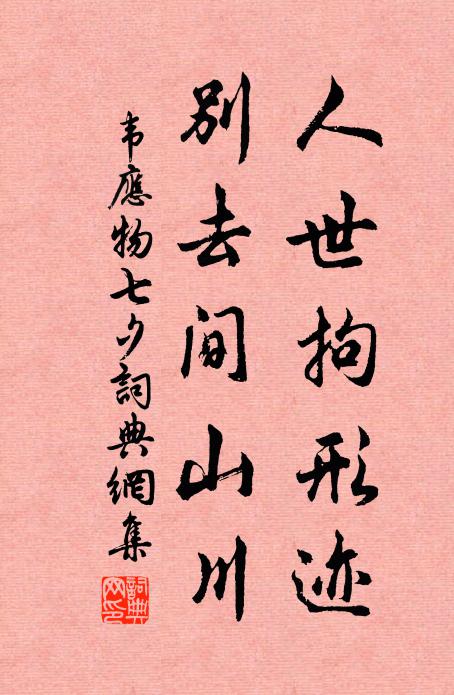 人世拘形迹
别去间山川
韦應物七夕詞典網集
詞典網印